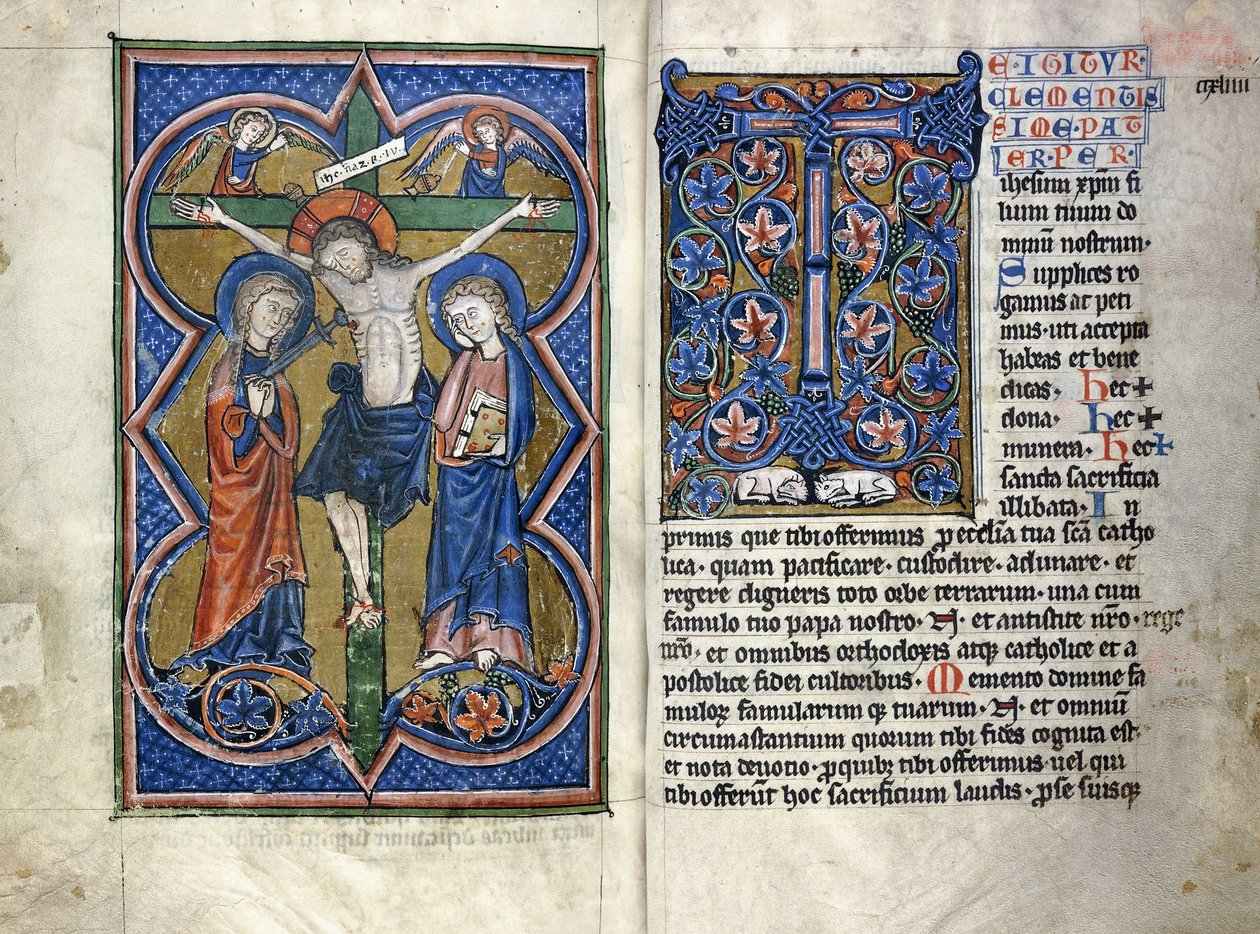 ihc. naz. R. IV.
T
E·IGITVR·
CLEMENTIS
SIME·PAT
ER·PER·
ihesum xpm fi
lium tuum do
minū nostrum·
Supplices ro
gamus ac peti
mus·uti accepta
habeas et bene
dicas· hec ✝
dona· hec ✝
munera· hec ✝
sancta sacrificia
illibata· In
primis que tibi offerimus p ecclia tua scā catho
lica· quam pacificare· custodire· adunare· et
regere digneris toto orbe terrarum· una cum
famulo tuo papa nostro· N· et antistite nr̄o· rege
nr̄o· et omnibus orthodoxis atq; catholice et a
postolice fidei cultoribus· Memento domine fa
muloꝝ famularum q; tuarum· N· et omniū
circumastantium quorum tibi fides cognita est·
et nota deuotio· ꝓ quibꝫ tibi offerimus· uel qui
tibi offerūt hoc sacrificium laudis· ꝓ se suisqꝫ